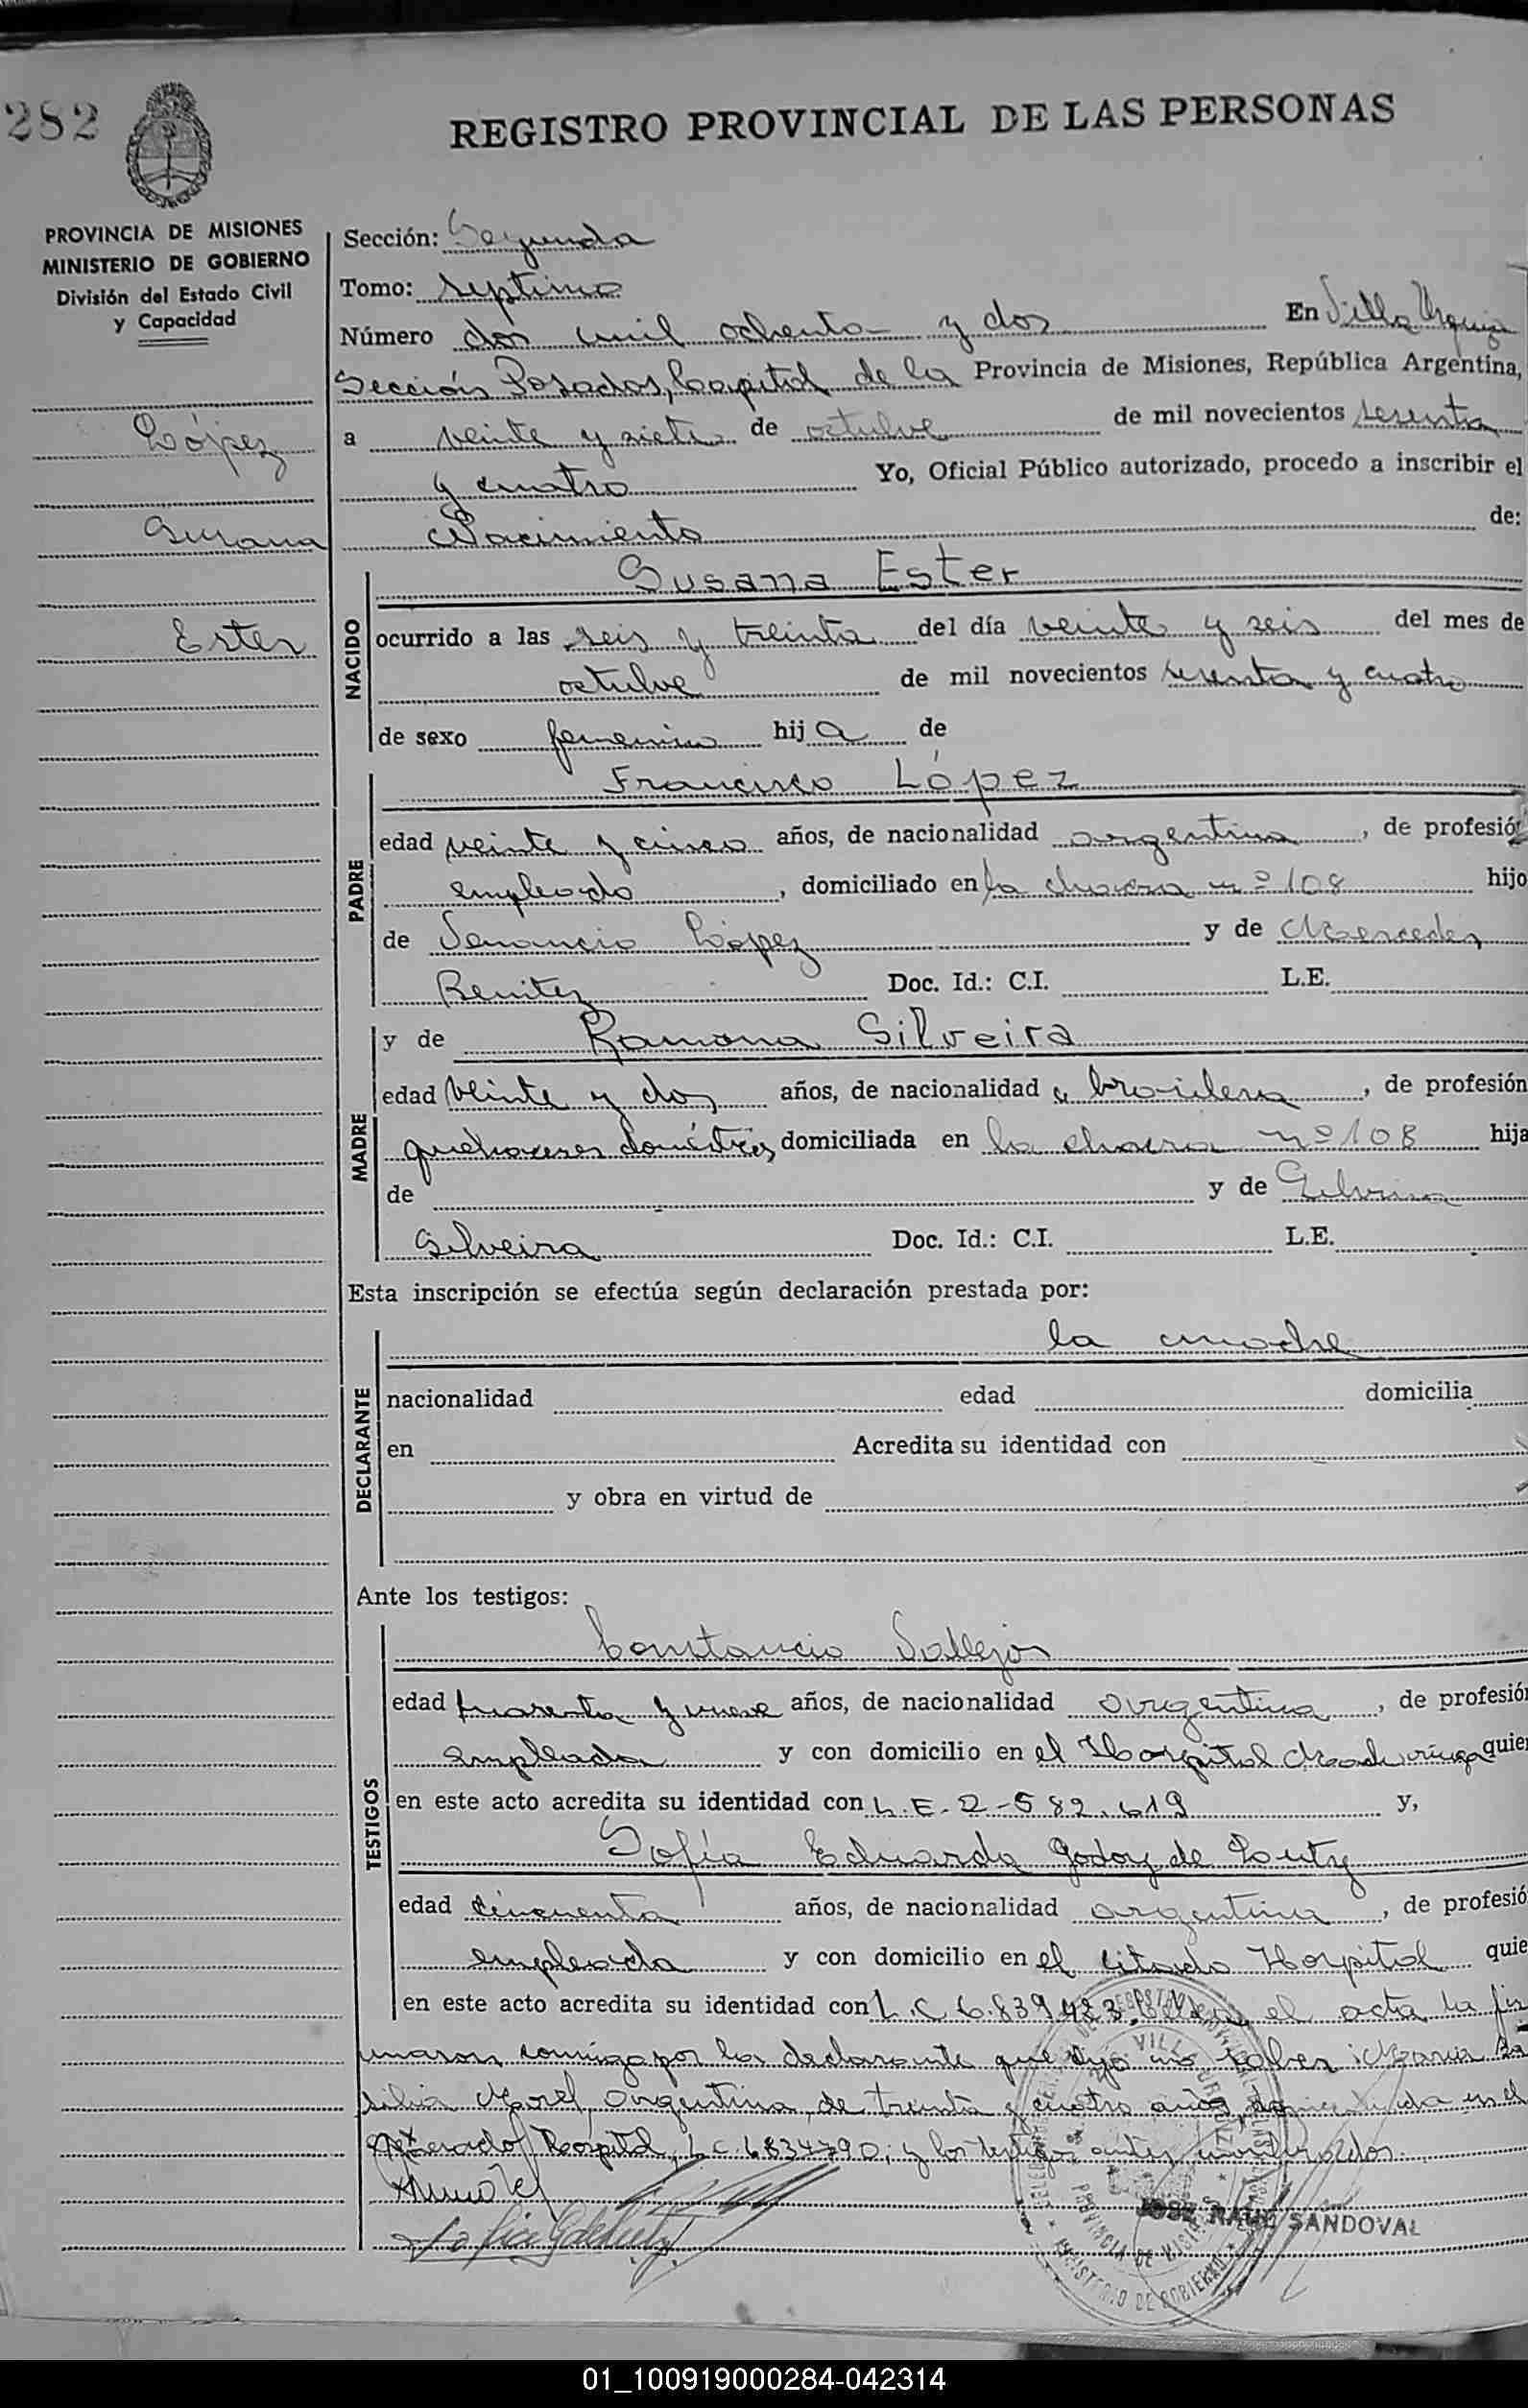 282
REGISTRO PROVINCIAL DE LAS PERSONAS
PROVINCIA DE MISIONES
MINISTERIO DE GOBIERNO
División del Estado Civil
y Capacidad
López
Susana
Ester
Sección: Segunda
Tomo: septimo
Número dos mil ochenta y dos En Villa Urquiza
Sección Posadas, Capital de la Provincia de Misiones, República Argentina,
a veinte y siete de octubre de mil novecientos sesenta
y cuatro Yo, Oficial Público autorizado, procedo a inscribir el
Nacimiento de:
NACIDO
Susana Ester
ocurrido a las seis y treinta del día veinte y seis del mes de
octubre de mil novecientos sesenta y cuatro
de sexo femenino hija de
PADRE
Francisco López
edad veinte y cinco años, de nacionalidad argentina, de profesión
empleado, domiciliado en la chacra nº 108 hijo
de Venancio López y de Mercedes
Benitez Doc. Id.: C.I. L.E.
MADRE
y de Ramona Silveira
edad veinte y dos años, de nacionalidad brasilera, de profesión
quehaceres domésticos, domiciliada en la chacra nº 108 hija
de y de
Silveira Doc. Id.: C.I. L.E.
Esta inscripción se efectúa según declaración prestada por:
DECLARANTE
la madre
nacionalidad edad domicilia
en Acredita su identidad con
y obra en virtud de
Ante los testigos:
TESTIGOS
Constancio Vallejos
edad cuarenta y nueve años, de nacionalidad argentina, de profesión
empleado y con domicilio en el Hospital Madariaga quien
en este acto acredita su identidad con L.E. 2-582.619 y,
Sofía Eduarda Godoy de
edad cincuenta años, de nacionalidad argentina, de profesión
empleada y con domicilio en el citado Hospital quien
en este acto acredita su identidad con L.C 6.839.483. el acta la fir
maron conmigo por la declarante que dijo no saber: Maria Ba
silia Morel, argentina, de treinta y cuatro años, domiciliada en el
Hospital, L.C. 6834790; y los testigos antes
JOSE RAUL SANDOVAL
PROVINCIA DE MISIONES
MINISTERIO DE GOBIERNO
01_100919000284-042314